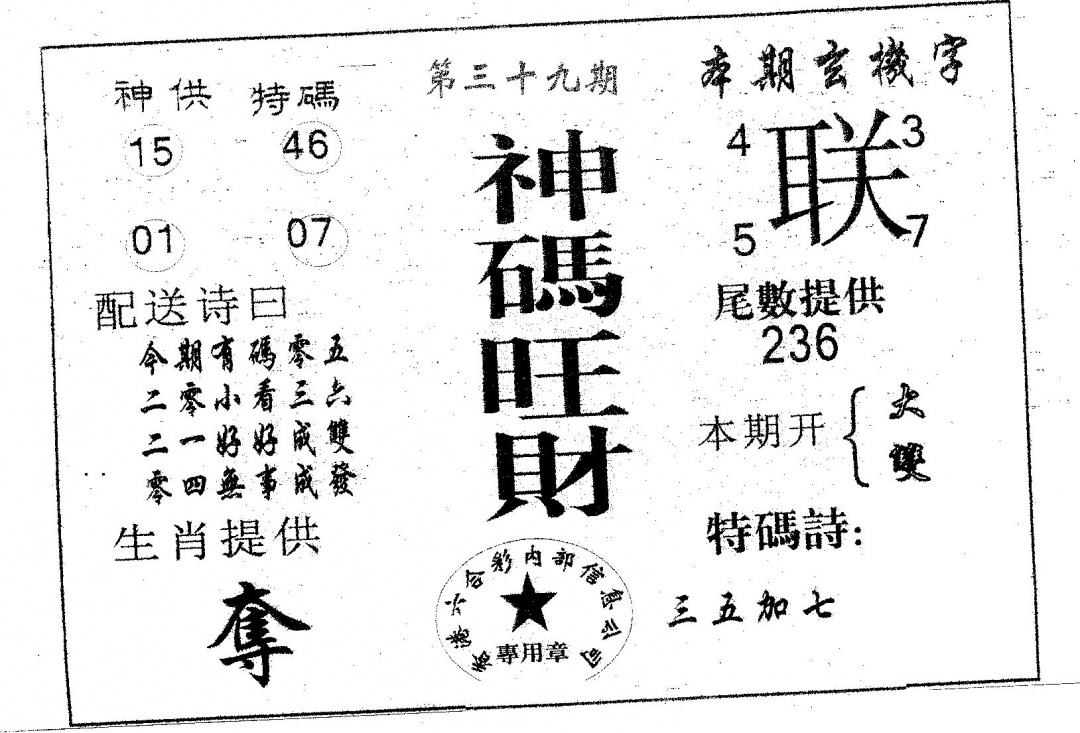 第三十九期
神碼旺財
神供 特碼
15 46
01 07
配送诗曰
今期有碼零五
二零小看三六
二一好好成雙
零四無事成發
生肖提供
奪
本期玄機字
4 联 3
5 7
尾數提供
236
本期开 { 大 雙
特碼詩:
三五加七
香港六合彩内部信息公司
專用章